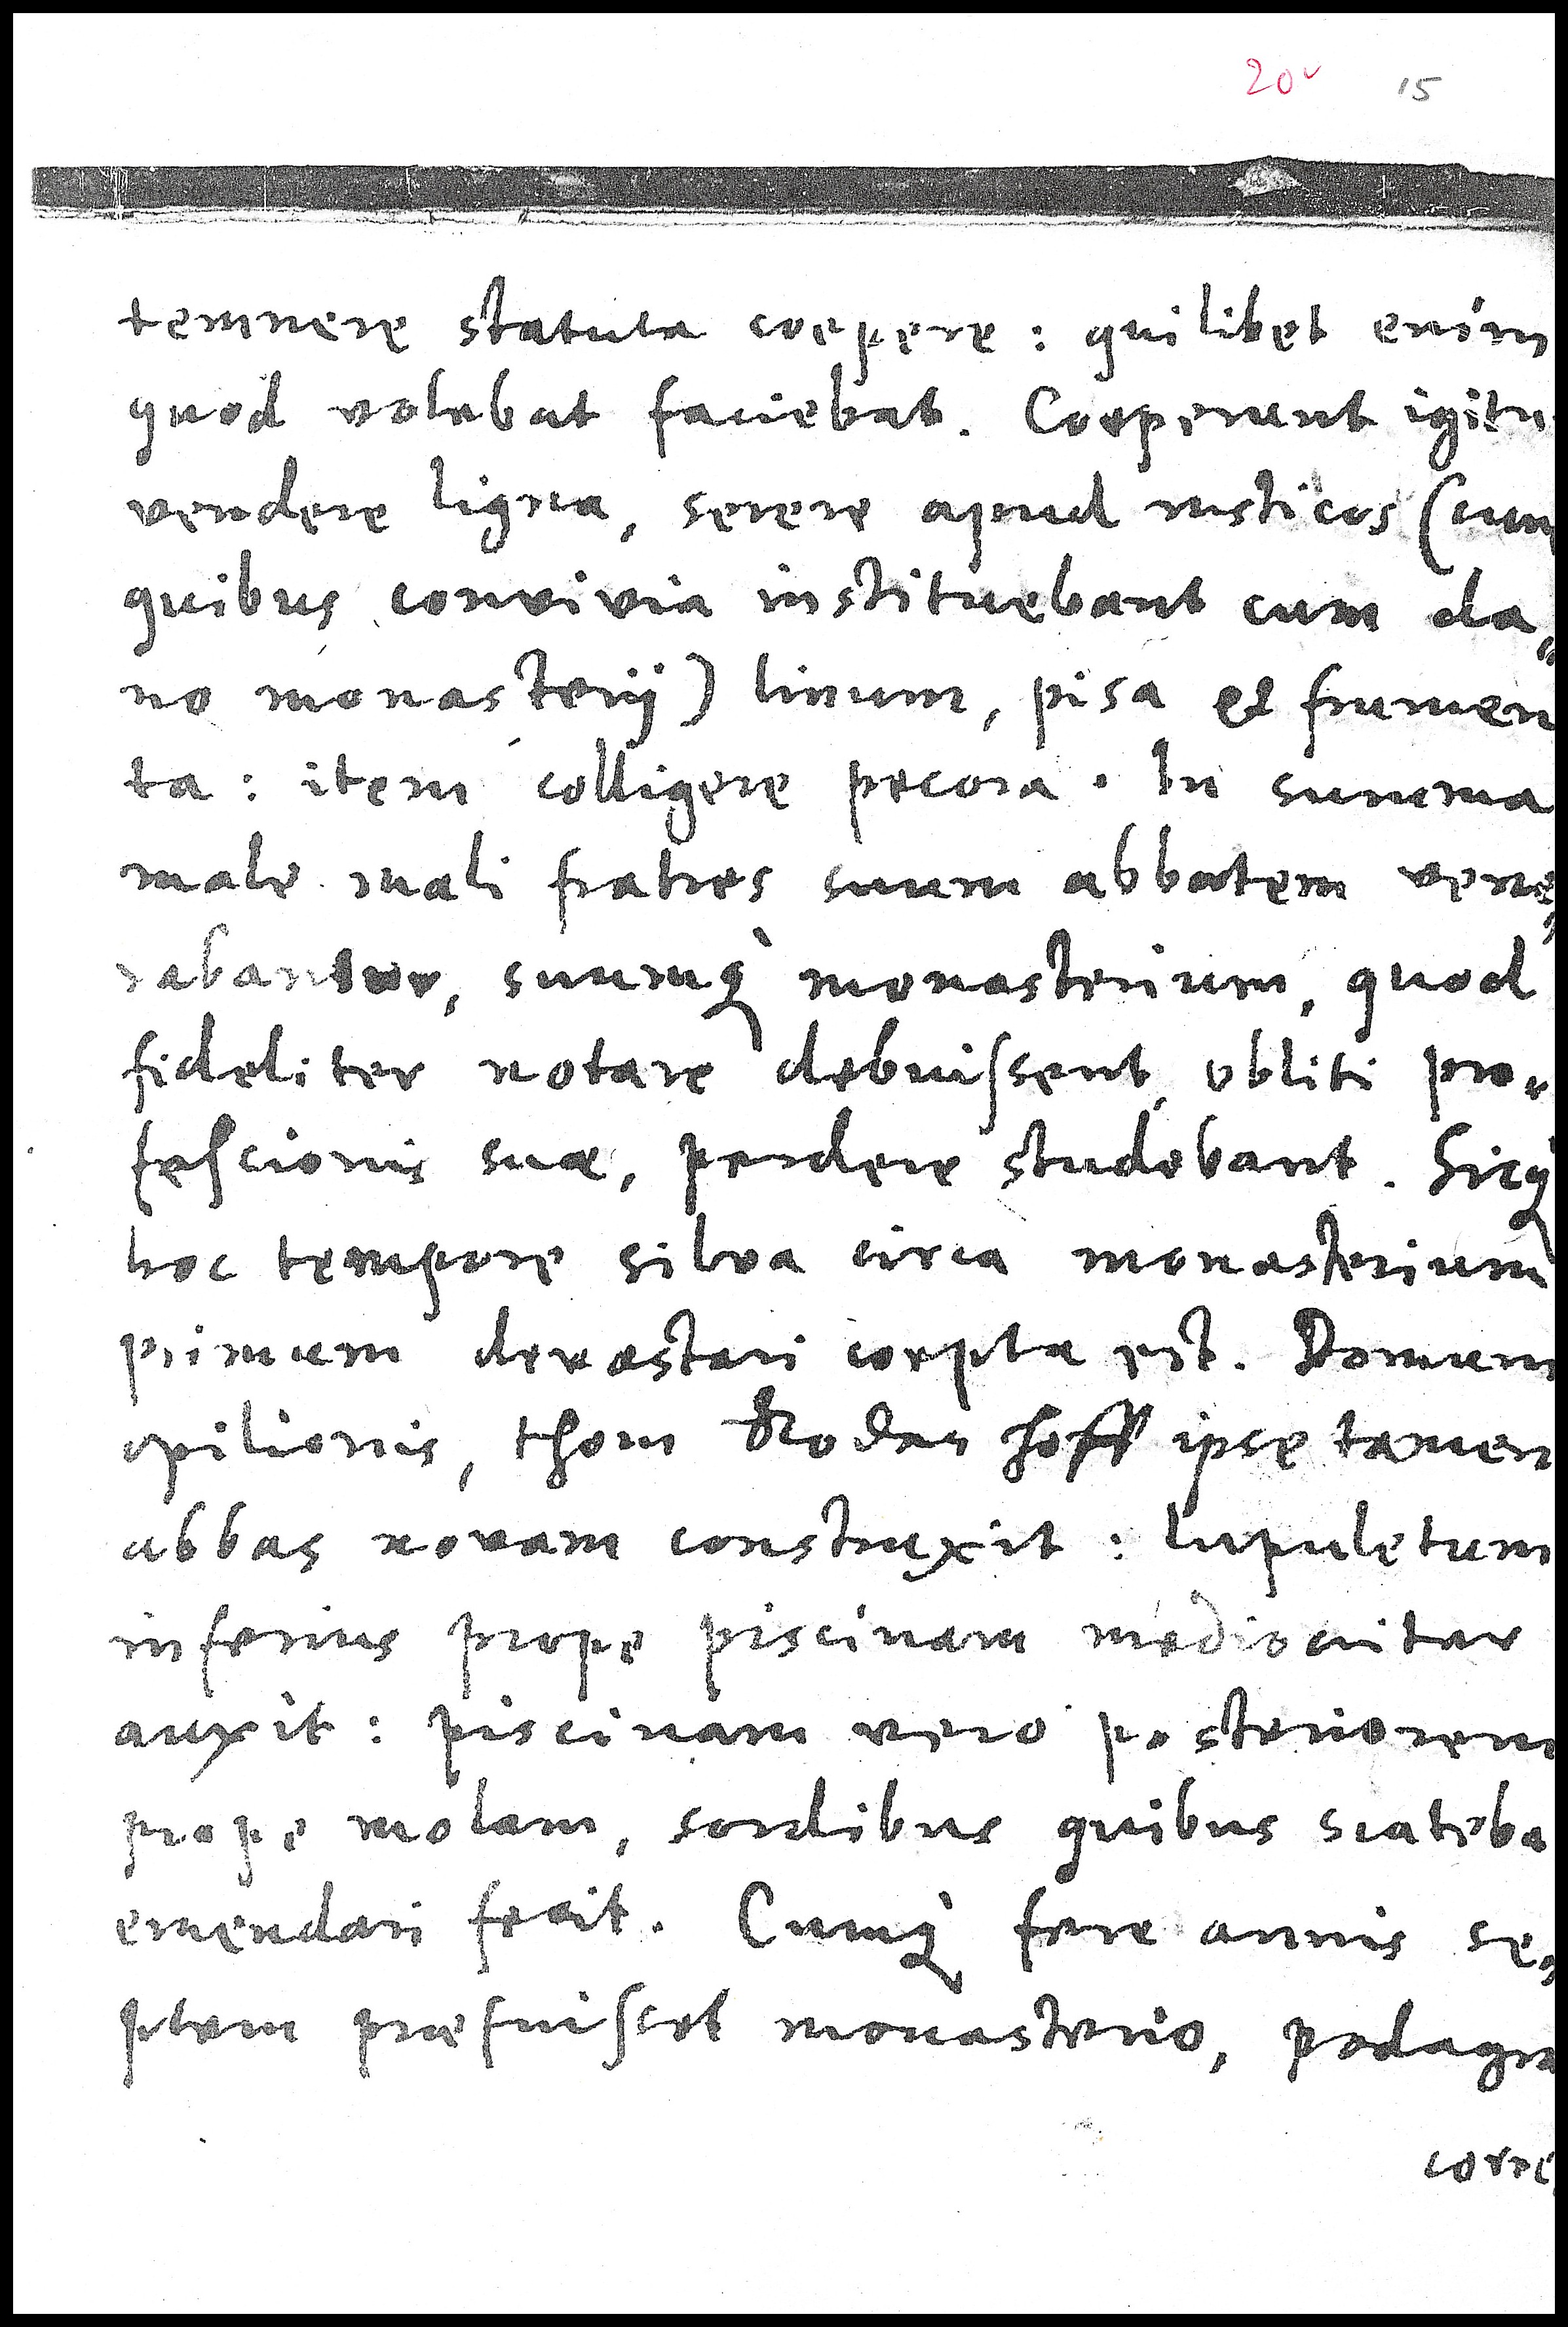 20v 15
temnere statuta coepere : quilibet enim
quod volebat faciebat. Coeperunt igitu
vendere ligna, serere apud rusticos (cum
quibus convivia instituebant cum da„
no monasterij) linum, pisa et frumen
ta : item colligere pecora. In summa
male mali fratres suum abbatem vene„
rabantur, suumq̀ monasterium, quod
fideliter notare debuiſsent, obliti pro„
feſsionis suæ, perdere studebant. Sicq̀
hoc tempore silva circa monasterium
primum devastari coepta est. Domum
opilionis, thom Roden hoff ipse tamen
abbas novam construxit : lupuletum
inferius prope piscinam mediocriter
auxit : piscinam vero posteriorem
prope molam, sordibus quibus scateba
emendari fecit. Cumq̀ fere annis se„
ptem præfuiſset monasterio, podagra
corre